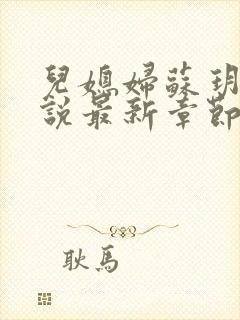 兒媳婦蘇玥
說最新章節
耿馬